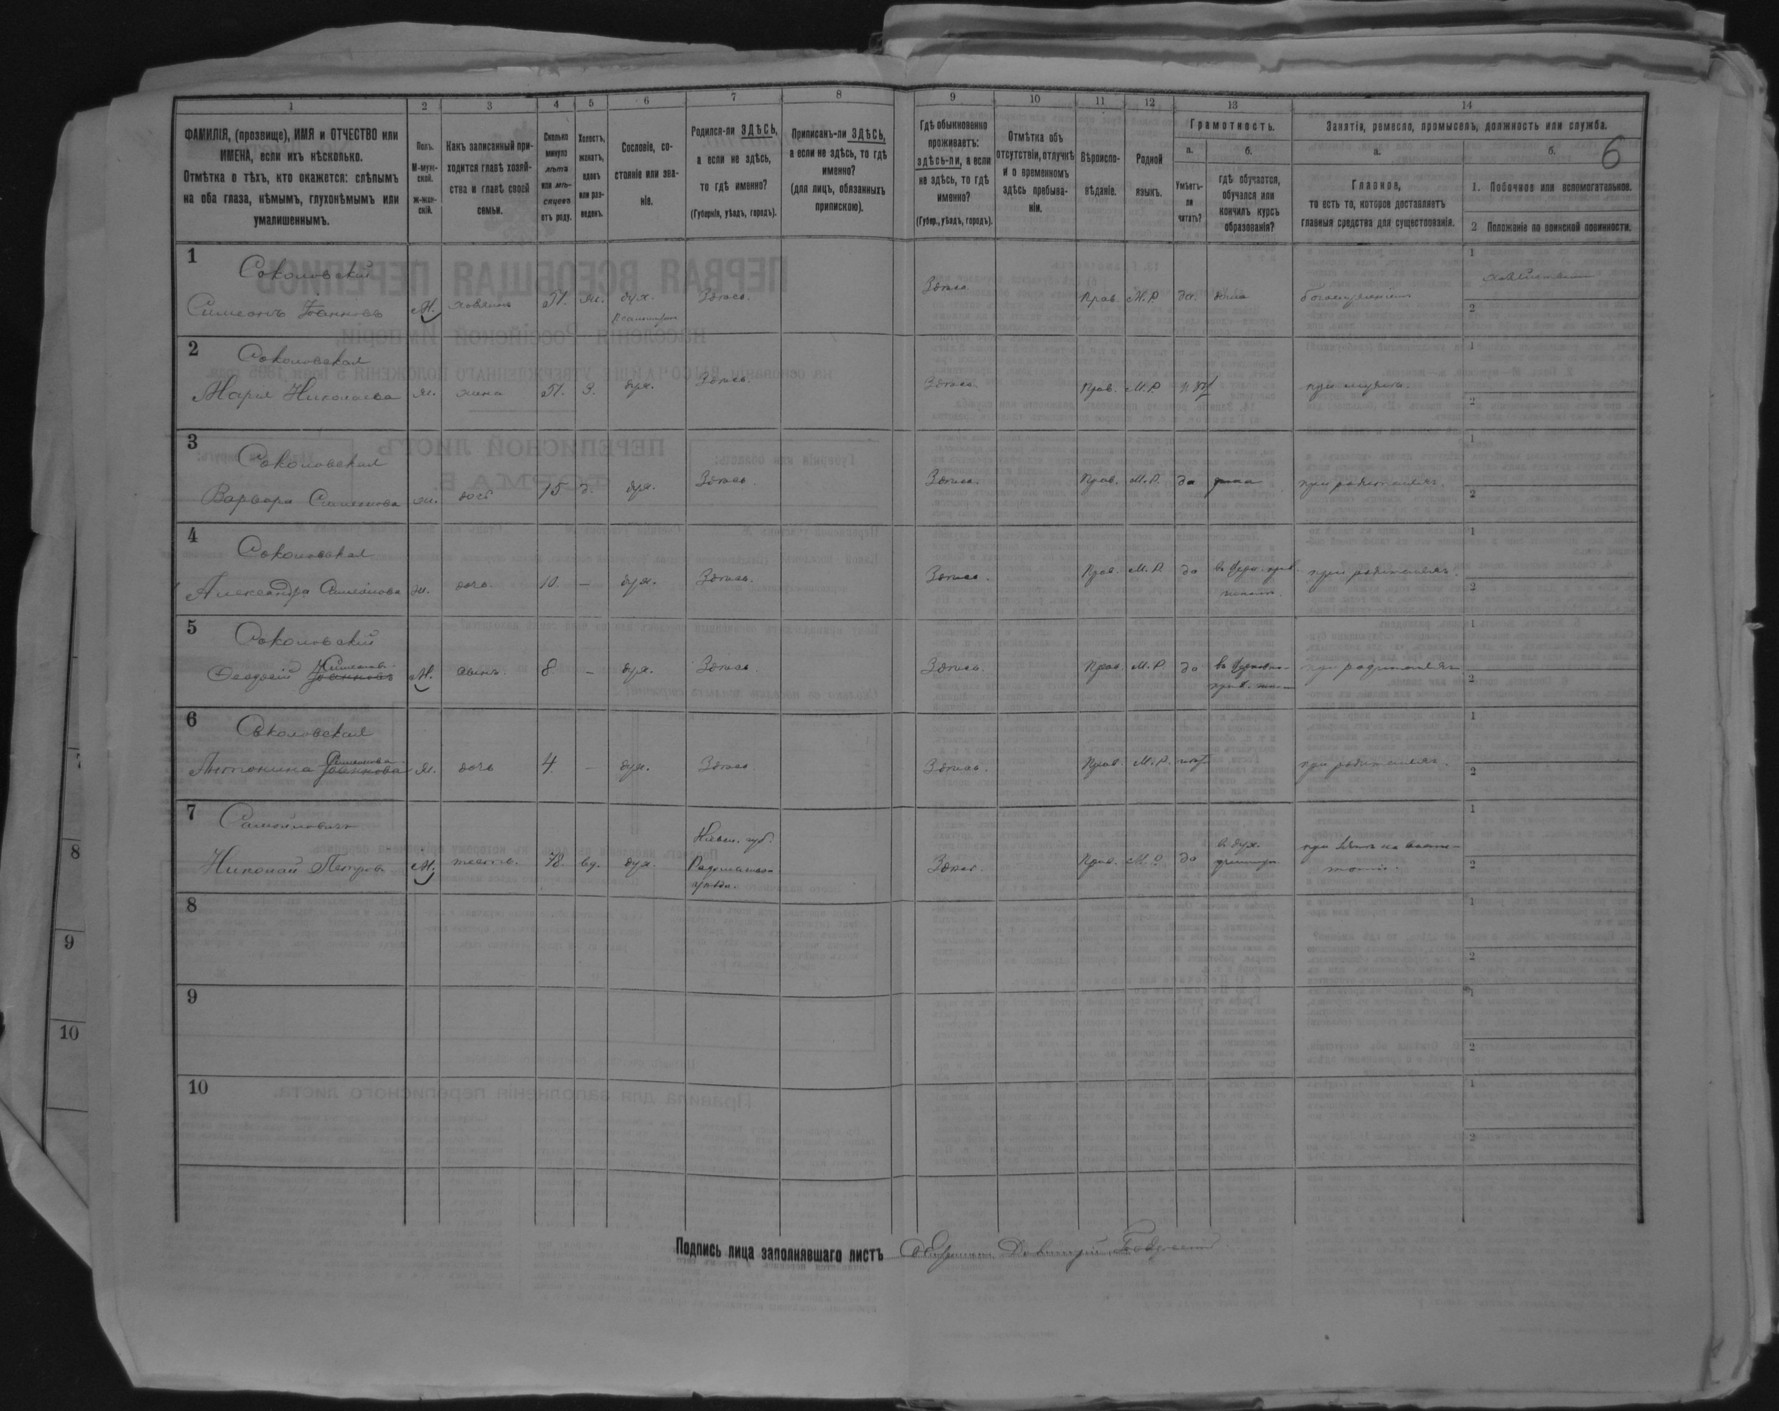 1 2 3 4 5 6 7 8 9 10 11 12 13 14
ФАМИЛІЯ, (прозвище), ИМЯ и ОТЧЕСТВО или
ИМЕНА, если ихъ нѣсколько.
Отмѣтка о тѣхъ, кто окажется: слѣпымъ
на оба глаза, нѣмымъ, глухонѣмымъ или
умалишеннымъ.
Полъ.
М-муж-
ской.
ж-жен-
скій.
Какъ записанный при-
ходится главѣ хозяй-
ства и главѣ своей
семьи.
Сколько
минуло
лѣтъ
или мѣ-
сяцевъ
отъ роду.
Холостъ,
женатъ,
вдовъ
или раз-
веденъ.
Сословіе, со-
стояніе или зва-
ніе.
Родился-ли ЗДѢСЬ,
а если не здѣсь,
то гдѣ именно?
(Губернія, уѣздъ, городъ).
Приписанъ-ли ЗДѢСЬ,
а если не здѣсь, то гдѣ
именно?
(для лицъ, обязанныхъ
припискою).
Гдѣ обыкновенно
проживаетъ:
здѣсь-ли, а если
не здѣсь, то гдѣ
именно?
(Губер., уѣздъ, городъ).
Отмѣтка объ
отсутствіи, отлучкѣ
и о временномъ
здѣсь пребыва-
ніи.
Вѣроиспо-
вѣданіе.
Родной
языкъ.
Грамотность.
а.
Умѣетъ-
ли
читать?
б.
гдѣ обучается,
обучался или
кончилъ курсъ
образованія?
Занятіе, ремесло, промыселъ, должность или служба.
6
а.
Главное,
то есть то, которое доставляетъ
главныя средства для существованія.
б.
1. Побочное или вспомогательное.
2 Положеніе по воинской повинности.
1
Соколовскій
Симеонъ Іоанновъ М. хозяинъ 51. ж. дух. Здѣсь. Здѣсь Прав. М.Р да.
1
2
2
Соколовская
Марія Николаева ж. жена 51. З. дух. Здѣсь. Здѣсь. Прав. М.Р нѣт при мужѣ.
1
2
3
Соколовская
Варвара Симеонова ж. дочь 15 д. дух. Здѣсь. Здѣсь. Прав. М.Р. да дома при родителяхъ.
1
2
4
Соколовская
Александра Симеонова ж. дочь. 10 – дух. Здѣсь. Здѣсь. Прав. М.Р. да при родителяхъ.
1
2
5
Соколовскій
Симеонов.
Феодосій Іоанновъ М. сынъ. 8 – дух. Здѣсь. Здѣсь. Прав. М.Р. да въ церковно- при родителяхъ
1
2
6
Соколовская
Симеонова
Антонина Іоаннова ж. дочь 4. – дух. Здѣсь. Здѣсь. Прав. М.Р. нѣт при родителяхъ.
1
2
7
Самойловичъ
Николай Петровъ М. тесть. 78. вд. дух. Кіевск. губ. Радомысльск. уѣзда. Здѣсь. Прав. М.Р. да въ дух. училищѣ
1
2
8
1
2
9
1
2
10
1
2
Подпись лица заполнявшаго листъ
7
8
9
10